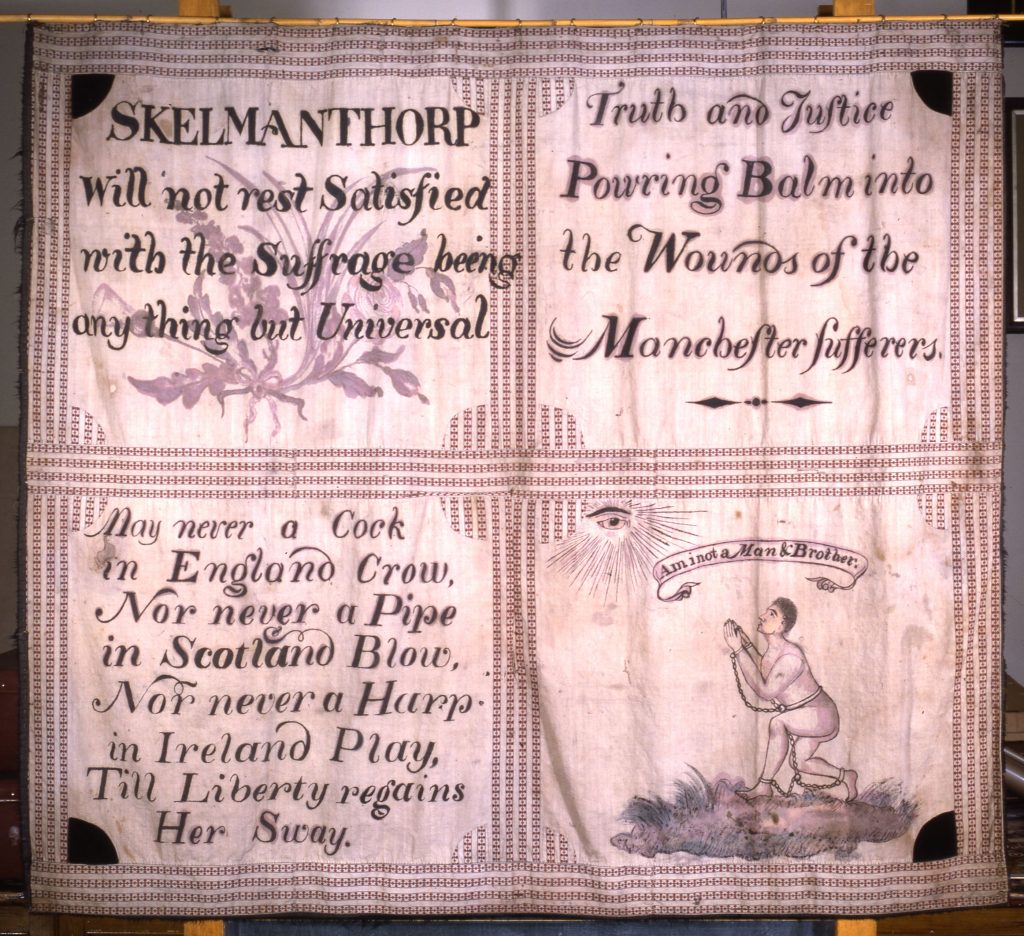 SKELMANTHORP
Will not rest Satisfied
with the Suffrage being
any thing but Universal
Truth and Juſtice
Powring Balm into
the Wounds of the
Mancheſter ſufferers.
May never a Cock
in England Crow,
Nor never a Pipe
in Scotland Blow,
Nor never a Harp
in Ireland Play,
Till Liberty regains
Her Sway.
Am i not a Man & Brother.